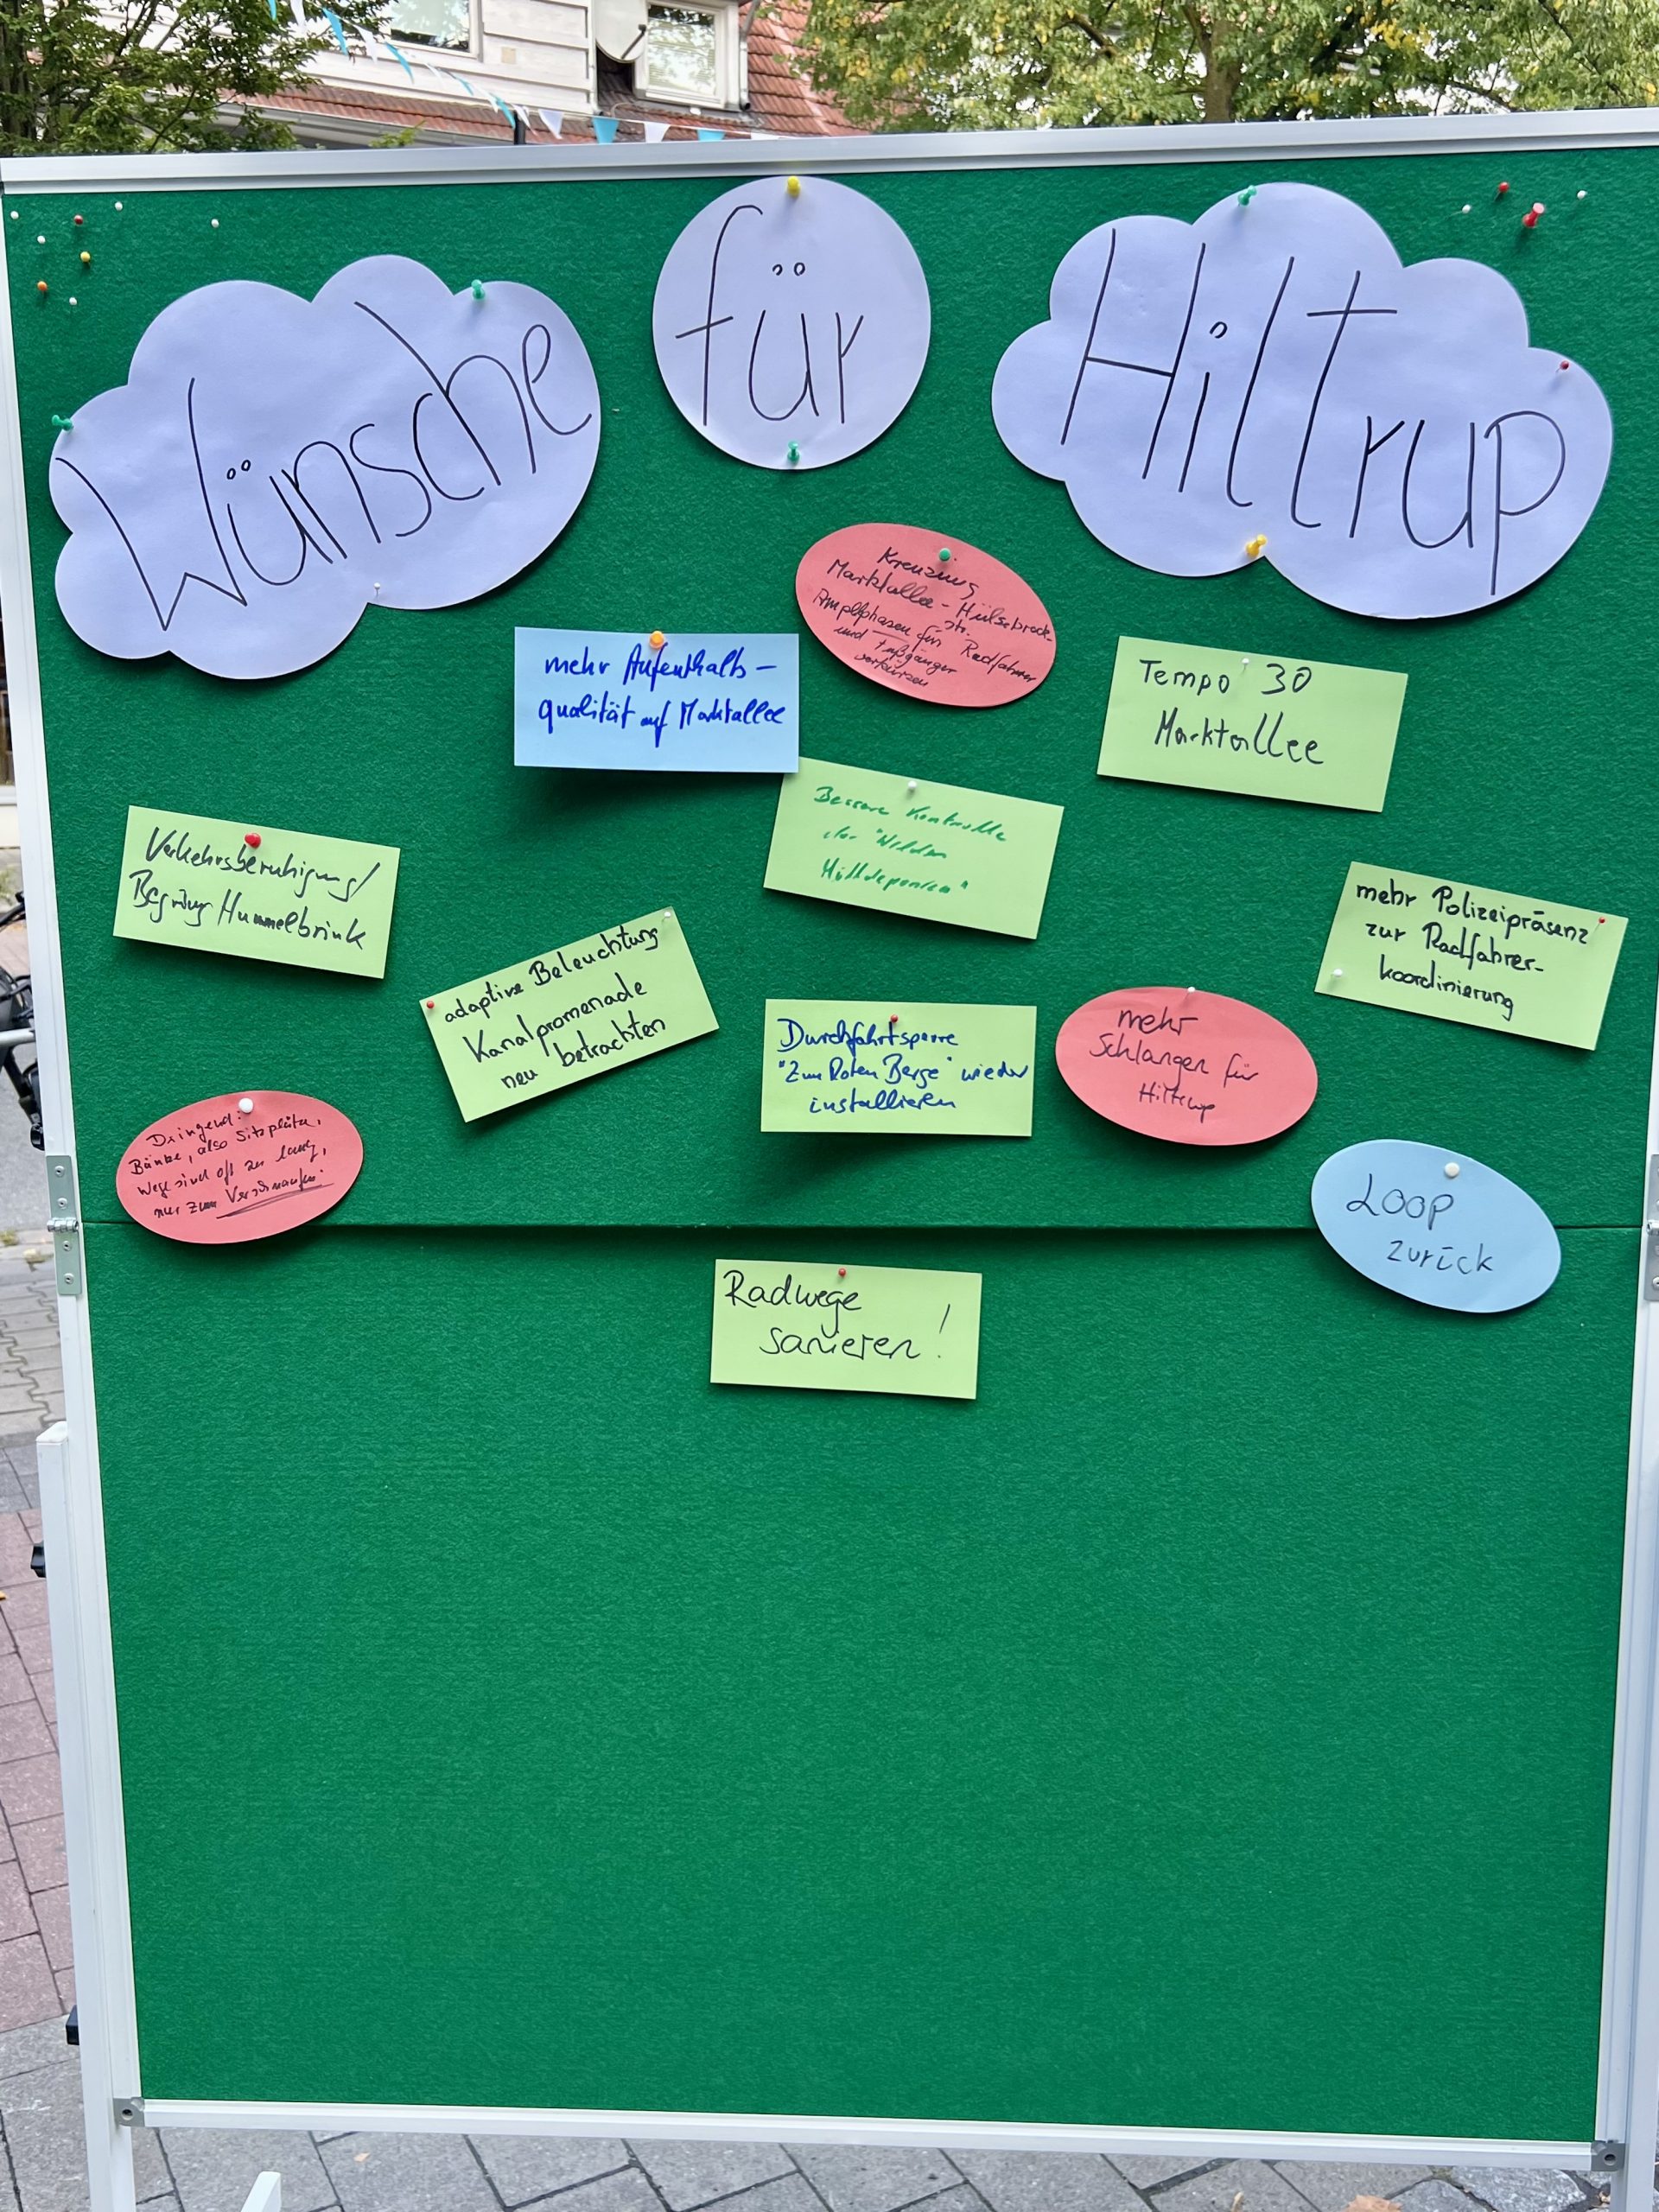 Wünsche
für
Hiltrup
Kreuzung
Marktallee - Hülsebrock-
str.
Ampelphasen für Radfahrer
und Fußgänger
verkürzen
mehr Aufenthalts-
qualität auf Marktallee
Tempo 30
Marktallee
Bessere Kontrolle
der "Wilden
Mülldeponien"
Verkehrsberuhigung/
Begrüng Hummelbrink
mehr Polizeipräsenz
zur Radfahrer-
koordinierung
adaptive Beleuchtung
Kanalpromenade
neu betrachten
Durchfahrtsperre
"Zum Roten Berge" wieder
installieren
mehr
Schlangen für
Hiltrup
Dringend:
Bänke, also Sitzplätze,
Wege sind oft zu lang,
nur zum Verschnaufen
LOOP
zurück
Radwege
sanieren!